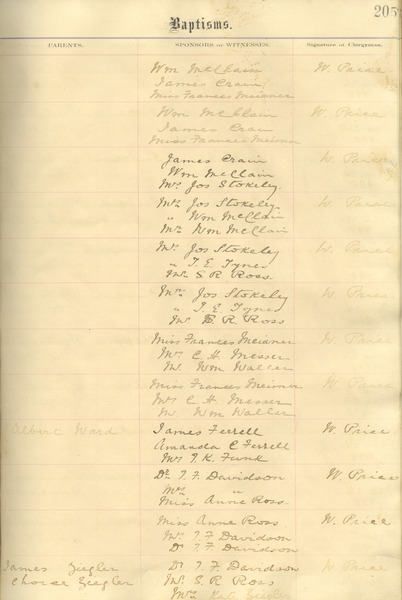 205
Baptisms.
PARENTS. SPONSORS or WITNESSES. Signature of Clergyman.
Wm McClain W. Price
James Crain
Miss Frances Meisner
Wm McClain W. Price
James Crain
Miss Frances Meisner
James Crain W. Price
Wm McClain
Mrs Jos Stokeley
Mrs Jos Stokeley W. Price
" Wm McClain
Mr Wm McClain
Mr Jos Stokeley W. Price
" T. E. Tynes
Mr S R Ross
Mrs Jos Stokeley W. Price
" T. E. Tynes
Mr S R Ross
Miss Frances Meisner W. Price
Mrs C. H. Messer
Mr Wm Waller
Miss Frances Meisner W. Price
Mrs C. H. Messer
Mr Wm Waller
Albert Ward James Ferrell W. Price
Amanda C Ferrell
Mrs T. K. Funk
Dr T. F. Davidson W. Price
Mrs "
Miss Anne Ross
Miss Anne Ross W. Price
Mrs T. F. Davidson
Dr T. F. Davidson
James Ziegler Dr T. F. Davidson W. Price
Ziegler Mr S. R Ross
Mrs Ziegler